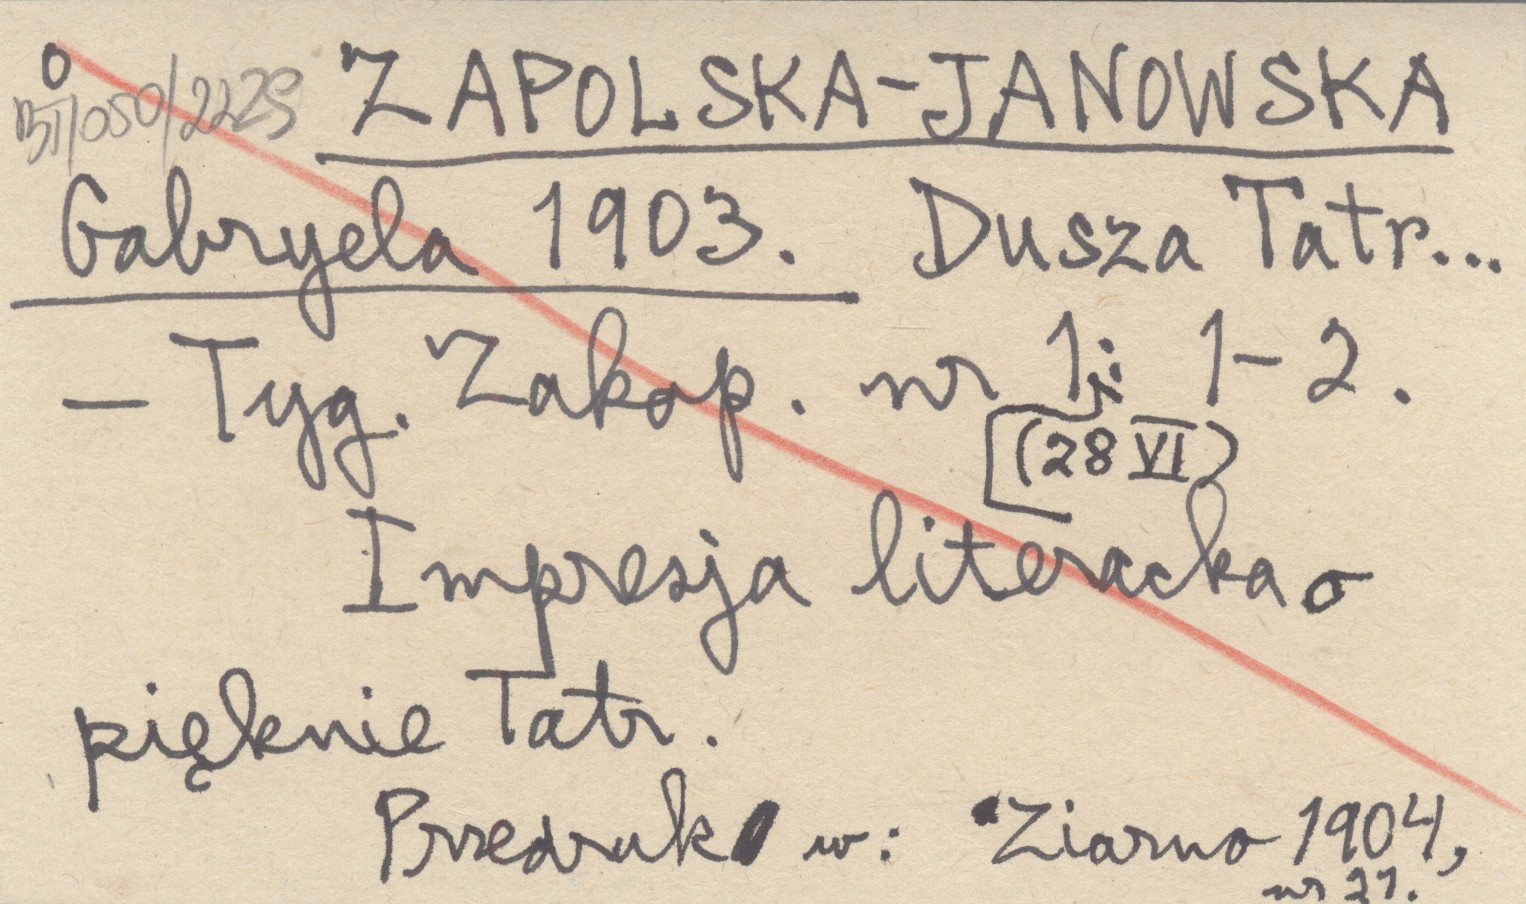 o
BT/050/2229 ZAPOLSKA-JANOWSKA
Gabryela 1903. Dusza Tatr...
– Tyg. Zakop. nr 1: 1-2.
(28 VI)
Impresja literacka o
pięknie Tatr.
Przedruk w: Ziarno 1904,
nr 21.